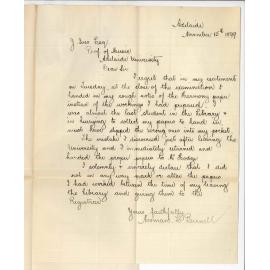 Adelaide
November 15th 1899
J Ives Esq
Prof of Music
Adelaide University
Dear Sir
I regret that in my excitement
on Tuesday, at the close of the examination I
handed in my rough notes of the harmony paper
instead of the workings I had prepared. I
was almost the last student in the Library &
in hurrying to collect my papers to hand in
must have slipped the wrong ones into my pocket.
The mistake I discovered just after leaving the
University and I immediately returned and
handed the proper papers to Mr Hodge
I solemnly & sincerely declare that I did
not in any way mark or alter the paper
I had worked between the time of my leaving
the Library and giving them to the
Registrar
Yours faithfully
Norman